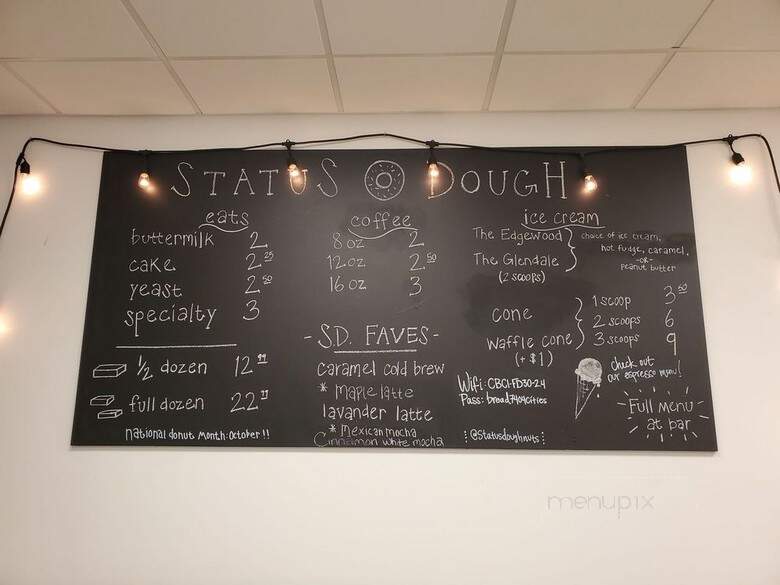 STATUS DOUGH
eats
buttermilk 2
cake 2 25
yeast 2 50
specialty 3
1/2 dozen 12
full dozen 22
national donut month: october!!
coffee
8 oz 2
12 oz 2 50
16 oz 3
- S.D. FAVES -
caramel cold brew
* maple latte
lavander latte
* mexican mocha
Cinnamon white mocha
ice cream
The Edgewood
The Glendale
(2 scoops)
choice of ice cream,
hot fudge, caramel,
-OR-
peanut butter
cone
waffle cone
(+ $1)
1 scoop 3 50
2 scoops 6
3 scoops 9
Wifi: CBCI-FD30-24
Pass: bread7404cities
@statusdoughnuts
check out
our espresso menu!
Full Menu
at bar
menupix